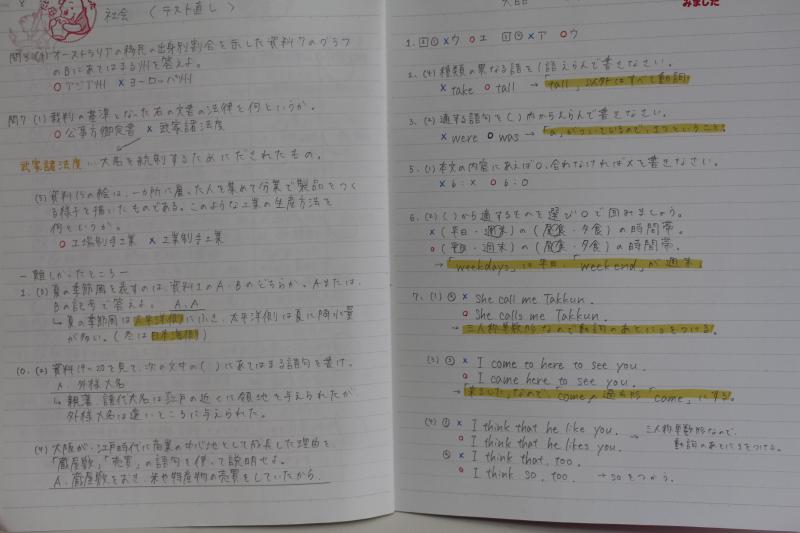 社会 (テスト直し)
問5(4)オーストラリアの移民の出身別割合を示した資料7のグラフ
のBにあてはまる州を答えよ。
○アジア州 ×ヨーロッパ州
問7 (1)裁判の基準となった右の文書の法律を何というか。
○公事方御定書 ×武家諸法度
武家諸法度…大名を統制するためにだされたもの。
(5)資料15の絵は、一か所に雇った人を集めて分業で製品をつく
る様子を描いたものである。このような工業の生産方法を
何というか。
○工場制手工業 ×工業制手工業
ー難しかったところー
1. (3)夏の季節風を表すのは、資料1のA・Bのどちらか。Aまたは、
Bの記号で答えよ。 A.A
↳夏の季節風は太平洋側にふき、太平洋側は夏に降水量
が多い。(冬は日本海側)
10. (2)資料19~20を見て、次の文中の( )にあてはまる語句を書け。
A. 外様大名
↳親藩・譜代大名は江戸の近くに領地を与えられたが
外様大名は遠いところに与えられた。
(4)大阪が、江戸時代に商業の中心地として成長した理由を、
「蔵屋敷」「売買」の語句を使って説明せよ。
A. 蔵屋敷をおき、米や特産物の売買をしていたから。
みました
1. ×ウ ○エ ×ア ○ウ
2. (4)種類の異なる語を1語えらんで書きなさい。
×take ○tall →「tall」以外はすべて動詞
3. (2)適する語句を( )内からえらんで書きなさい。
×were ○was →「a」がついているので、1つということ。
5. (1)本文の内容にあえば○、合わなければ×を書きなさい。
×b:× ○b:○
6. (2)( )から適するものを選び○で囲みましょう。
×(平日・週末)の(昼食・夕食)の時間帯。
○(平日・週末)の(昼食・夕食)の時間帯。
→「weekdays」は平日「weekend」が週末
7. (1) ④ × She call me Takkun.
○ She calls me Takkun.
→三人称単数形なので動詞のあとにsをつける。
(3) ③ × I come to here to see you.
○ I came here to see you.
→「来ました」なので、「come」過去形「came」にする。
(4) ① × I think that he like you.
○ I think that he likes you.
→三人称単数形なので、
動詞のあとにsをつける。
④ × I think that, too.
○ I think so, too. →soをつかう。